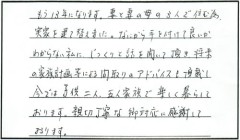 もう13年になります。妻と妻の母の3人で住む為、
実家を建て替えました。なにから手を付けて良いか
わからない私に、じっくりと話を聞いて頂き将来
の家族計画等による間取りのアドバイスも頂戴し
今では子供二人、五人家族で楽しく暮らして
おります。親切丁寧な御対応に感謝して
おります。